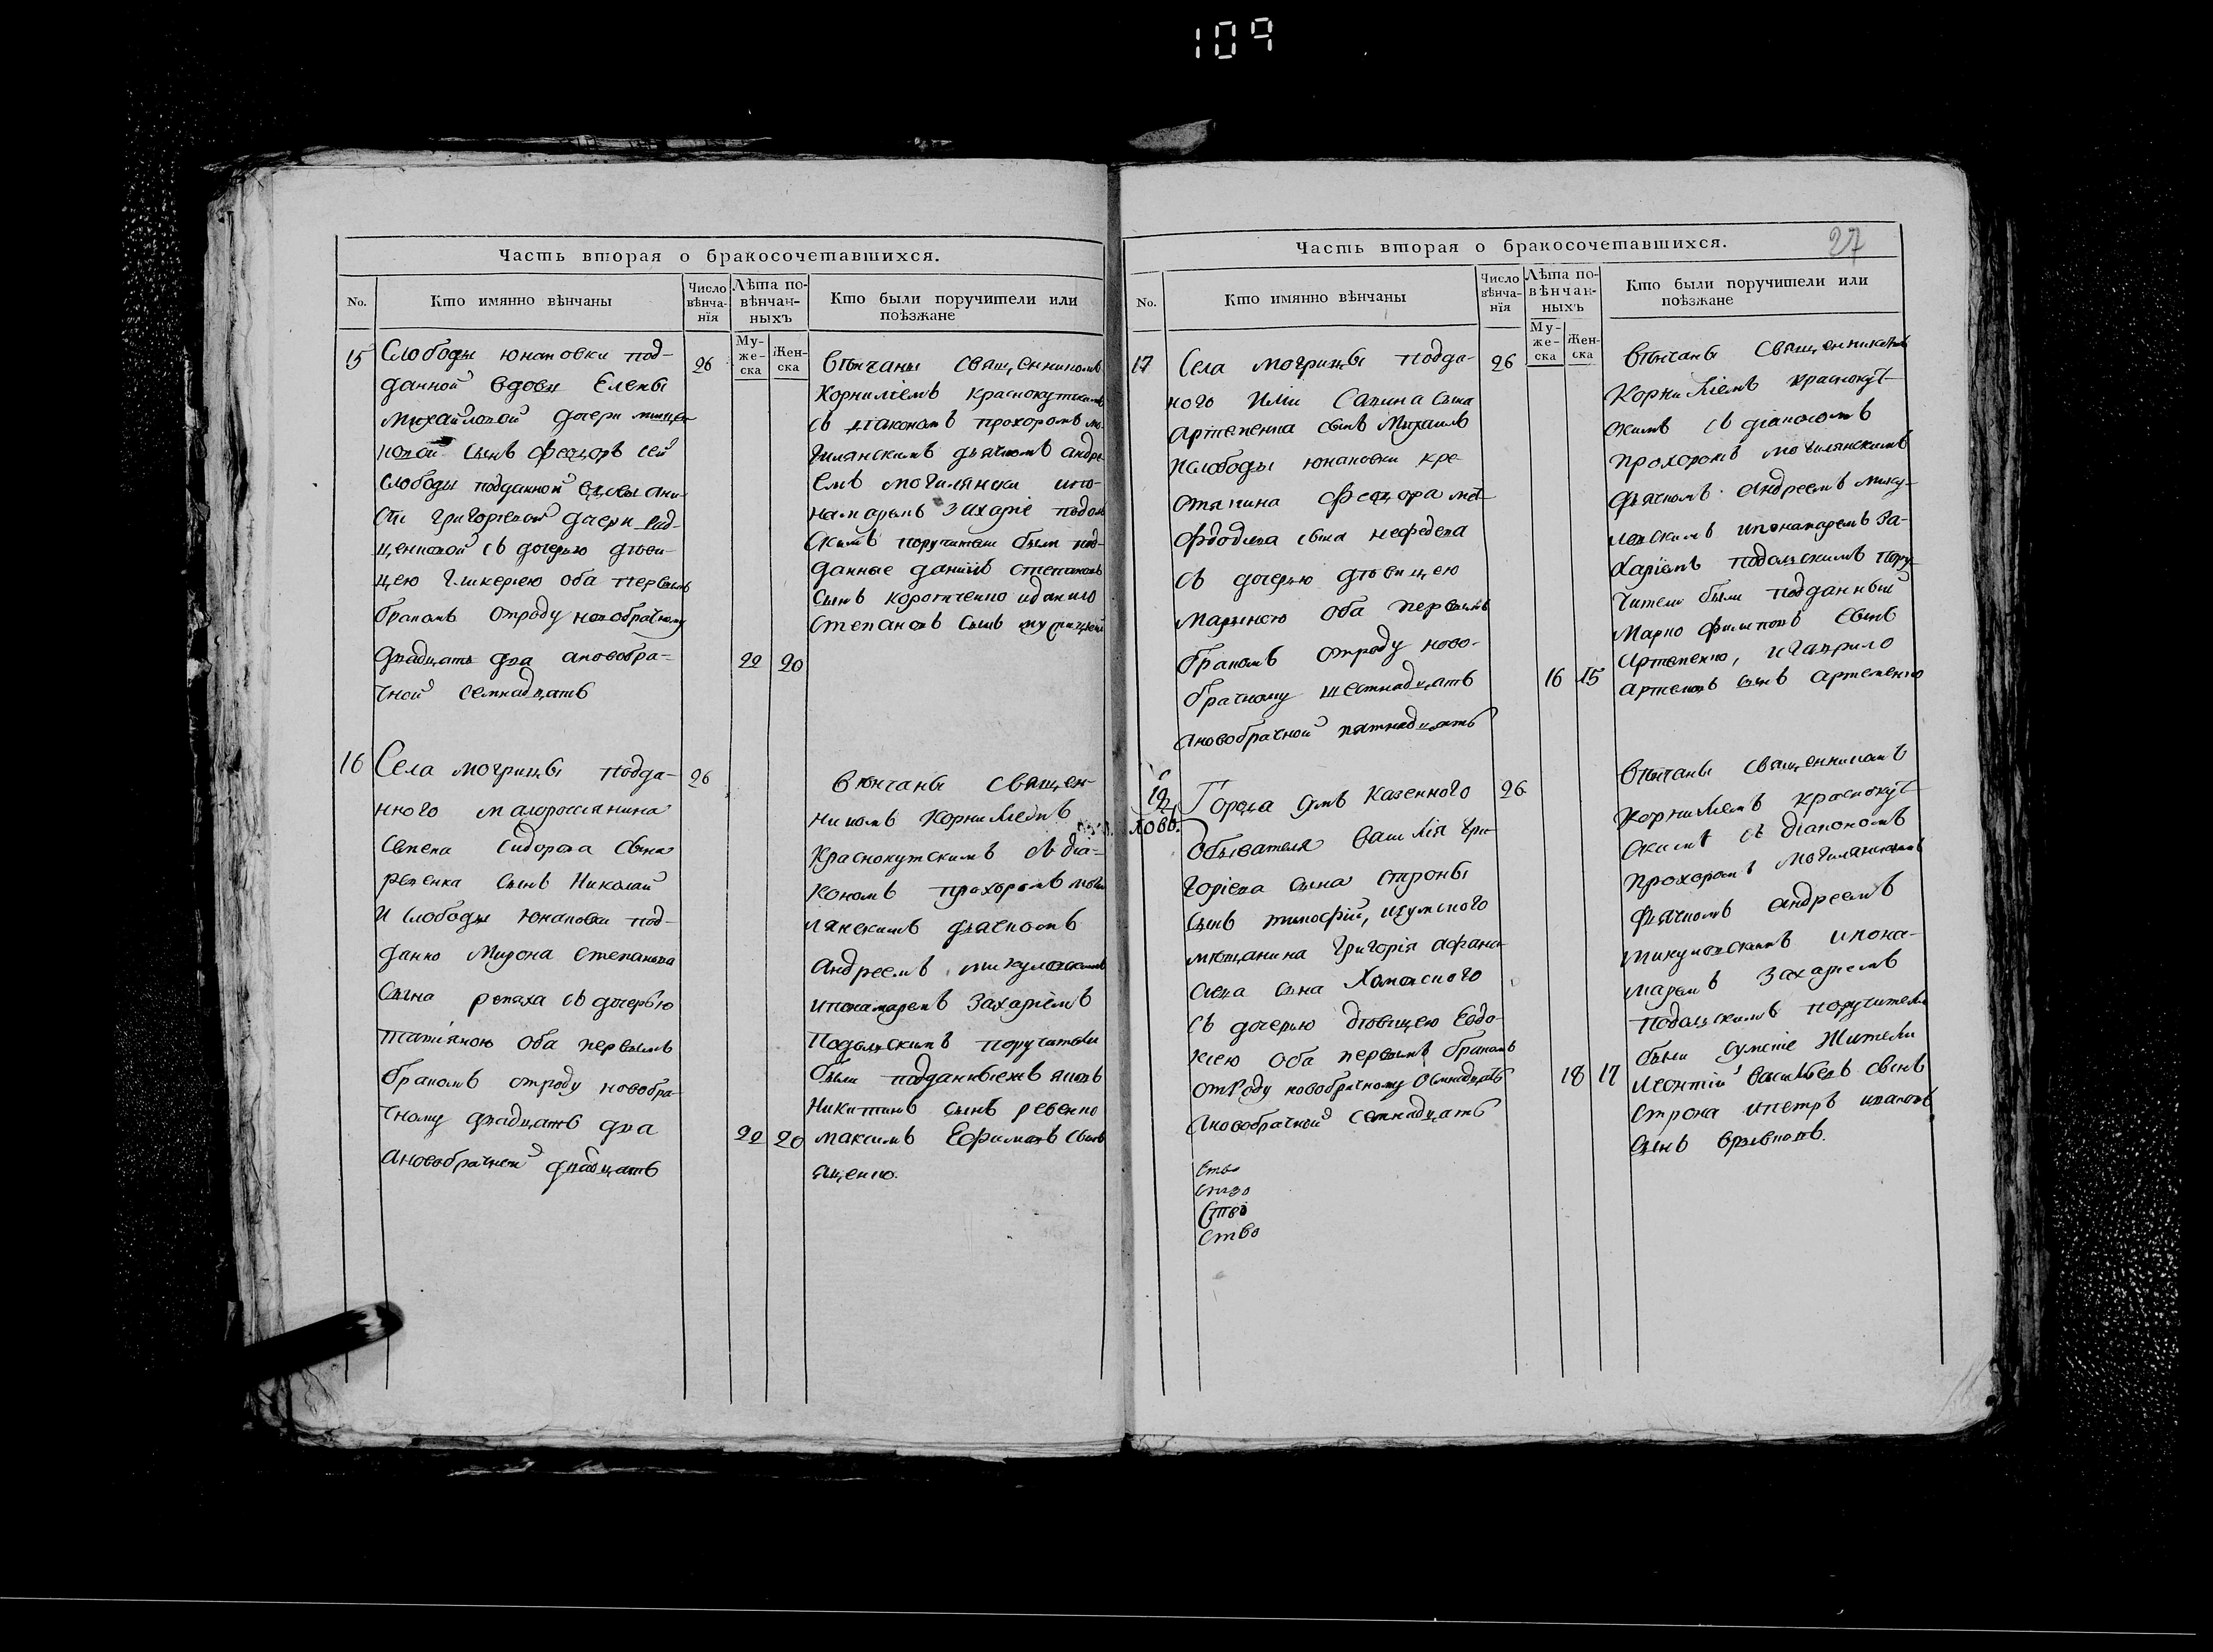 109
Часть вторая о бракосочетавшихся.
No.
Кто имянно вѣнчаны
Число вѣнча-нїя
Лѣта по-вѣнчан-ныхъ
Му-же-ска
Жен-ска
Кто были поручители или поѣзжане
15
Слободы юнаковки под-
данной вдовы Елены
Михайловой дочери
сынъ Феодоръ сей
слободы подданной вдовы ани-
сіи григорьевой дочери
съ дочерью дѣви-
цею гликеріею оба первымъ
бракомъ отроду новобрачному
двадцать два ановобра-
чной семнадцать
26
22
20
Вѣнчаны священникомъ
Корниліемъ краснокутскимъ
съ діакономъ прохоромъ мо-
гилянскимъ дьячкомъ андре-
емъ могилянски ипо-
намаремъ захаріе подол
скимъ поручители были под-
данные даніилъ степановъ
сынъ коротченко иданило
степановъ сынъ
16
Села могрицы подда-
нного малороссіянина
Семена Сидорова сына
ревенка сынъ Николай
и слободы юнаковки под-
данно Мирона степанова
сына репяха съ дочерью
татіяною оба первымъ
бракомъ отроду новобра-
чному двадцать два
ановобрачной двадцать
26
22
20
вѣнчаны священ-
никомъ Корниліемъ
Краснокутскимъ съ діа-
кономъ прохоромъ моги
лянскимъ дьячкомъ
Андреемъ микуловскимъ
ипонамаремъ Захаріемъ
Подольскимъ поручители
были подданные яковъ
Никитинъ сынъ ревенко
максимъ Ефимовъ сынъ
яценко.
Часть вторая о бракосочетавшихся.
27
No.
Кто имянно вѣнчаны
Число вѣнча-нїя
Лѣта по-вѣнчан-ныхъ
Му-же-ска
Жен-ска
Кто были поручители или поѣзжане
17
Села могрицы подда-
ного Савина сына
артеменка сынъ Михаилъ
ислободы юнаковки кре-
стянина феодора
сына нефедова
съ дочерью дѣвицею
мариною оба первымъ
бракомъ отроду ново-
брачному шестнадцать
Ановобрачной пятнадцать
26
16
15
вѣнчаны священникомъ
Корниліемъ краснокут-
скимъ съ діакономъ
прохоромъ могилянскимъ
дьячкомъ андреемъ мику-
ловскимъ ипонамаремъ За-
харіемъ подольскимъ пору-
чители были подданный
Марко филиповъ сынъ
Артеменко, игаврило
артемовъ сынъ артеменко
Города сумъ казенного
Обывателя василія гри-
горіева сына строны
сынъ тимофій, исумского
мѣщанина григорія афана-
сиева сына Хомовского
съ дочерью дѣвицею Евдо-
кіею оба первымъ бракомъ
отроду новобрачному осмнадцать
Ановобрачной семнадцать
26
18
17
вѣнчаны священникомъ
корниліемъ краснокут-
скимъ съ діакономъ
прохоромъ могилянскимъ
дьячкомъ андреемъ
микуловскимъ ипона-
маремъ захаріемъ
подольскимъ поручители
были сумскіе жители
леонтій васильевъ сынъ
строна ипетръ ивановъ
сынъ
ство
ство
ство
ство